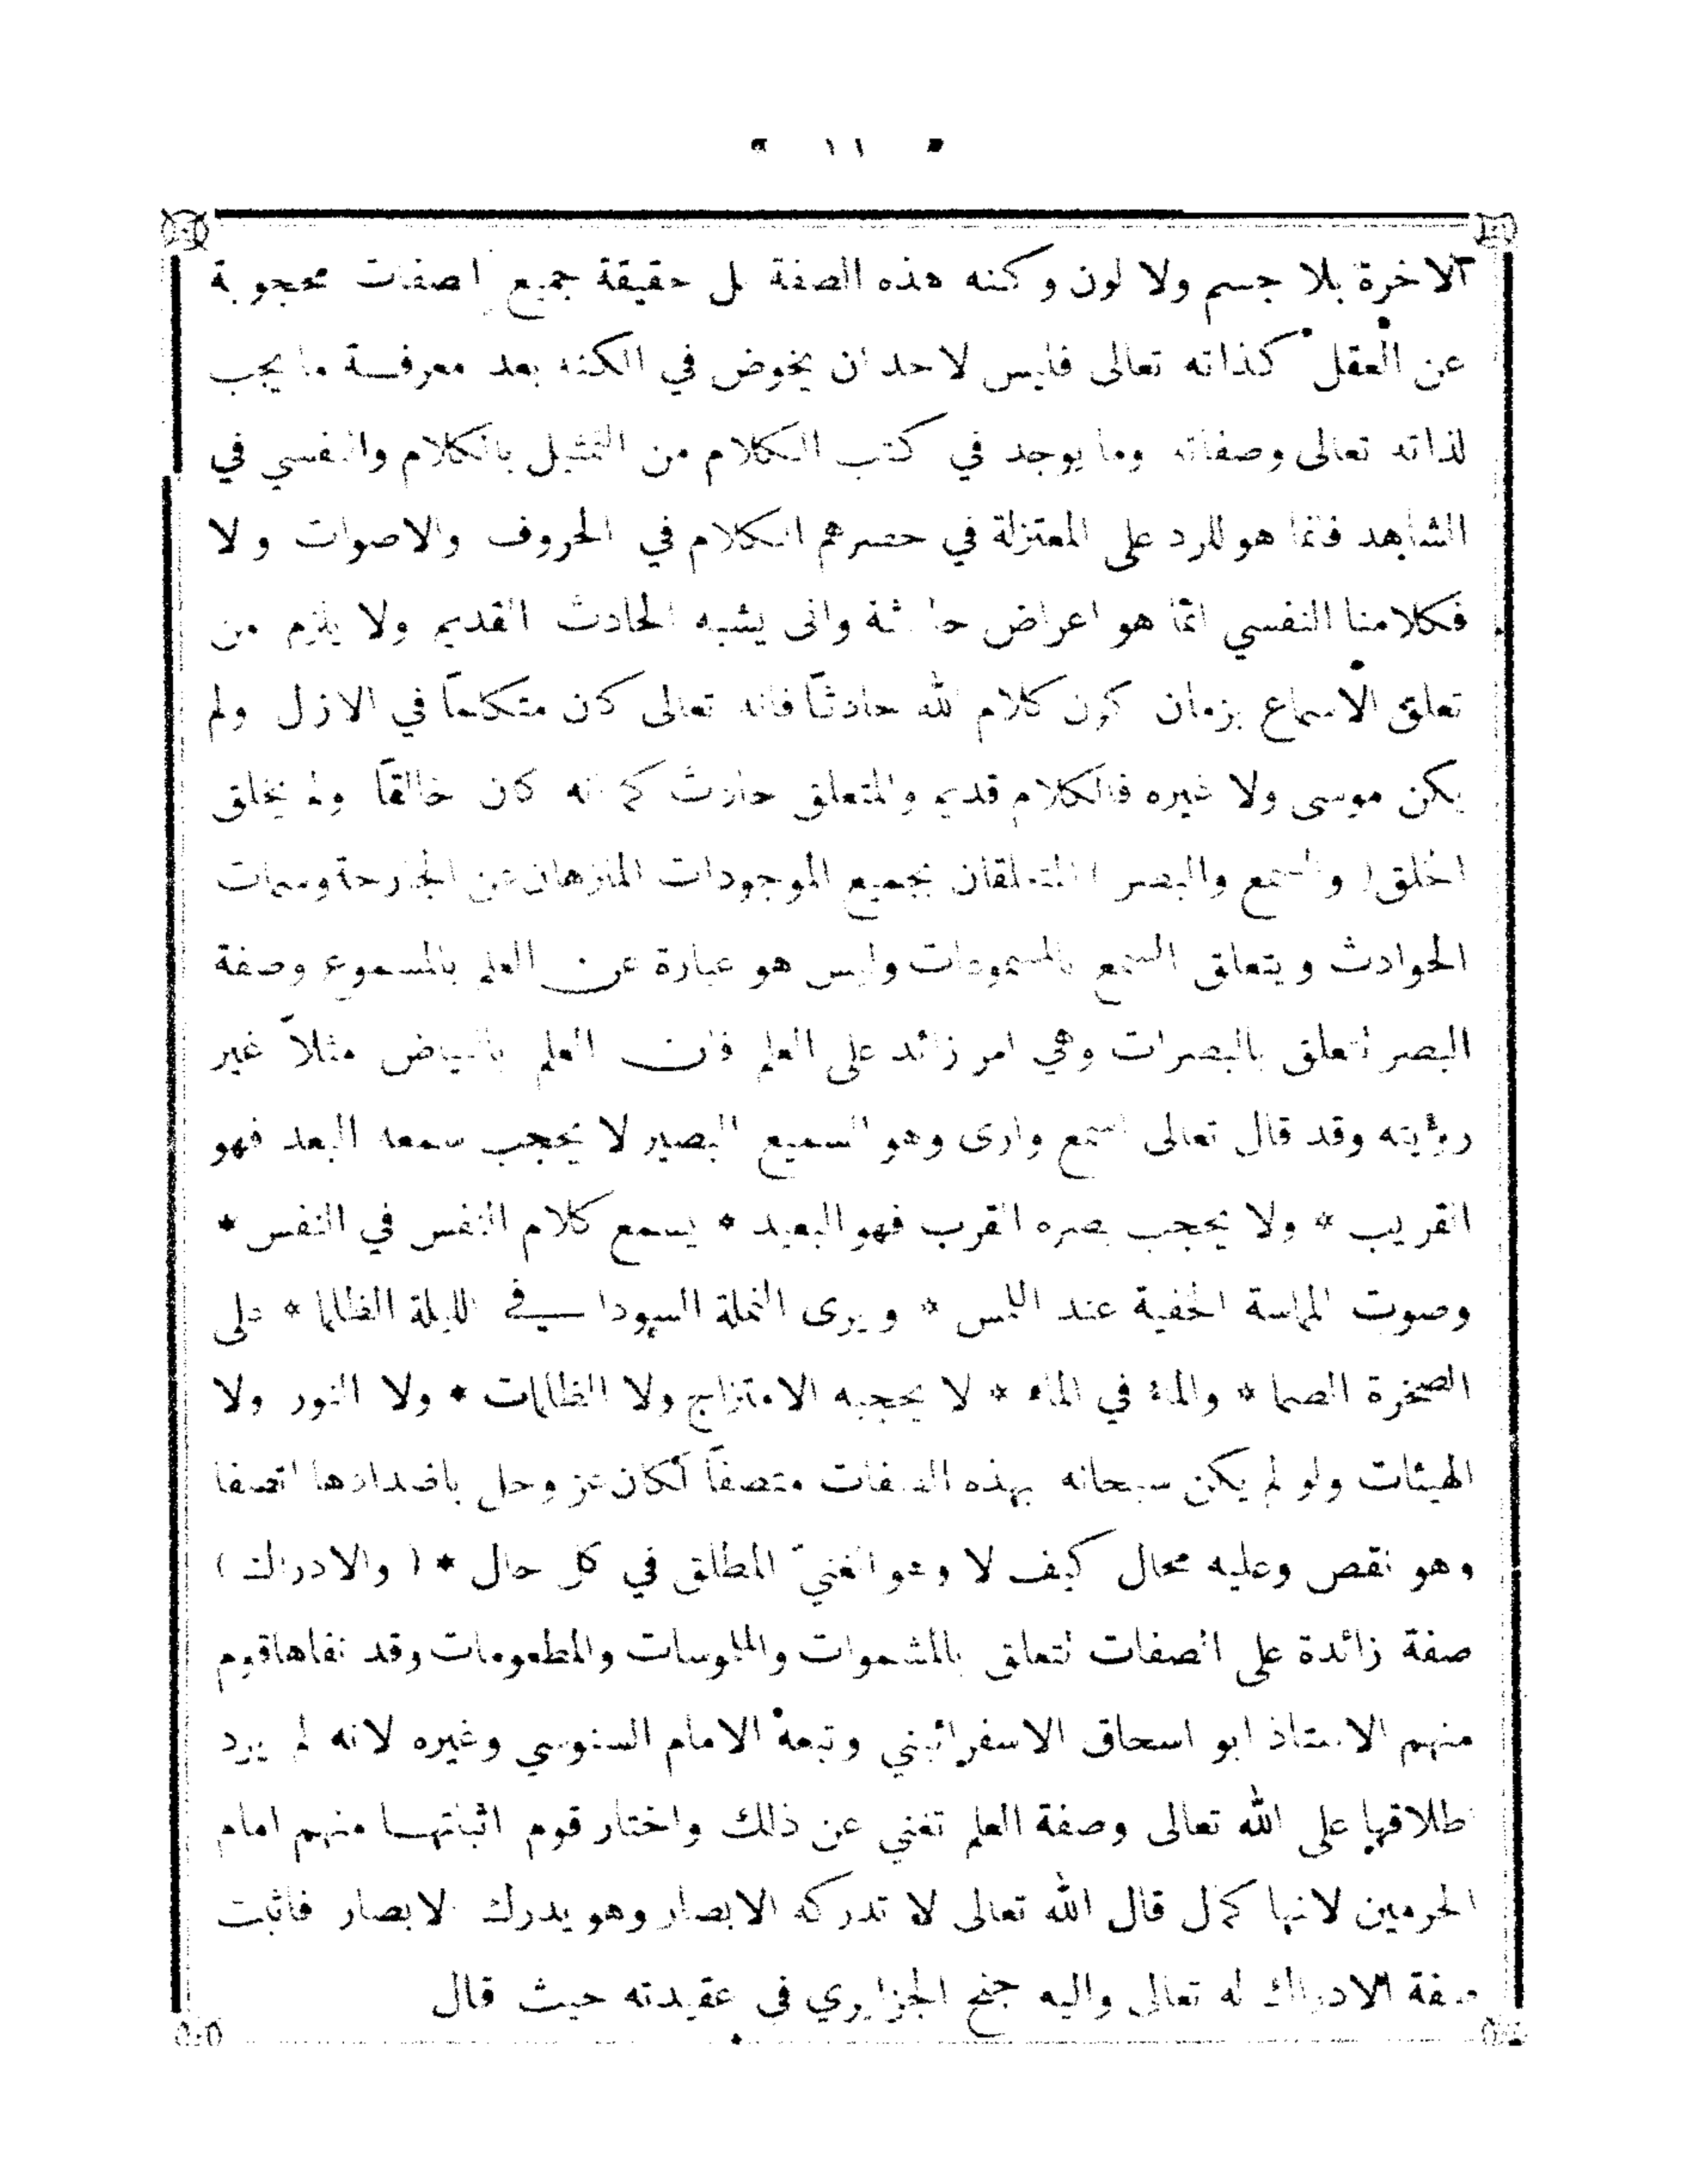 « ١١ »
الاخرة بلا جسم ولا لون وكنه هذه الصفة بل حقيقة جميع الصفات محجوبة
عن العقل كذاته تعالى فليس لاحد ان يخوض في الكنه بعد معرفة ما يجب
لذاته تعالى وصفاته وما يوجد في كتب الكلام من التمثيل بالكلام والنفسي في
الشاهد فانما هو للرد على المعتزلة في حصرهم الكلام في الحروف والاصوات ولا
فكلامنا النفسي انما هو اعراض حادثة وانى يشبه الحادث القديم ولا يلزم من
تعلق الاسماع بزمان كون كلام الله حادثاً فانه تعالى كان متكلماً في الازل ولم
يكن موسى ولا غيره فالكلام قديم والمتعلق حادث كما انه كان خالقاً ولم يخلق
الخلق ( والسمع والبصر ) المتعلقان بجميع الموجودات المنزهان عن الجارحة وسمات
الحوادث ويتعلق السمع بالمسموعات وليس هو عبارة عن العلم بالمسموع وصفة
البصر تتعلق بالبصرات وهي امر زائد على العلم فان العلم بالبياض مثلاً غير
رؤيته وقد قال تعالى اسمع وارى وهو السميع البصير لا يحجب سمعه البعد فهو
القريب * ولا يحجب بصره القرب فهو البعيد * يسمع كلام النفس في النفس *
وصوت المماسة الخفية عند اللمس * ويرى النملة السودا في الليلة الظلما * على
الصخرة الصما * والماء في الماء * لا يحجبه الامتزاج ولا الظلمات * ولا النور ولا
الهيئات ولو لم يكن سبحانه بهذه الصفات متصفاً لكان عز وجل باضدادها اتصفا
وهو نقص وعليه محال كيف لا وهو الغنيّ المطلق في كل حال * ( والادراك )
صفة زائدة على الصفات تتعلق بالمشموات والملموسات والمطعومات وقد نفاها قوم
منهم الاستاذ ابو اسحاق الاسفرائيني وتبعه الامام السنوسي وغيره لانه لم يرد
اطلاقها على الله تعالى وصفة العلم تغني عن ذلك واختار قوم اثبتها منهم امام
الحرمين لانها كمال قال الله تعالى لا تدركه الابصار وهو يدرك الابصار فاثبت
صفة الادراك له تعالى واليه جنح الجزايري في عقيدته حيث قال